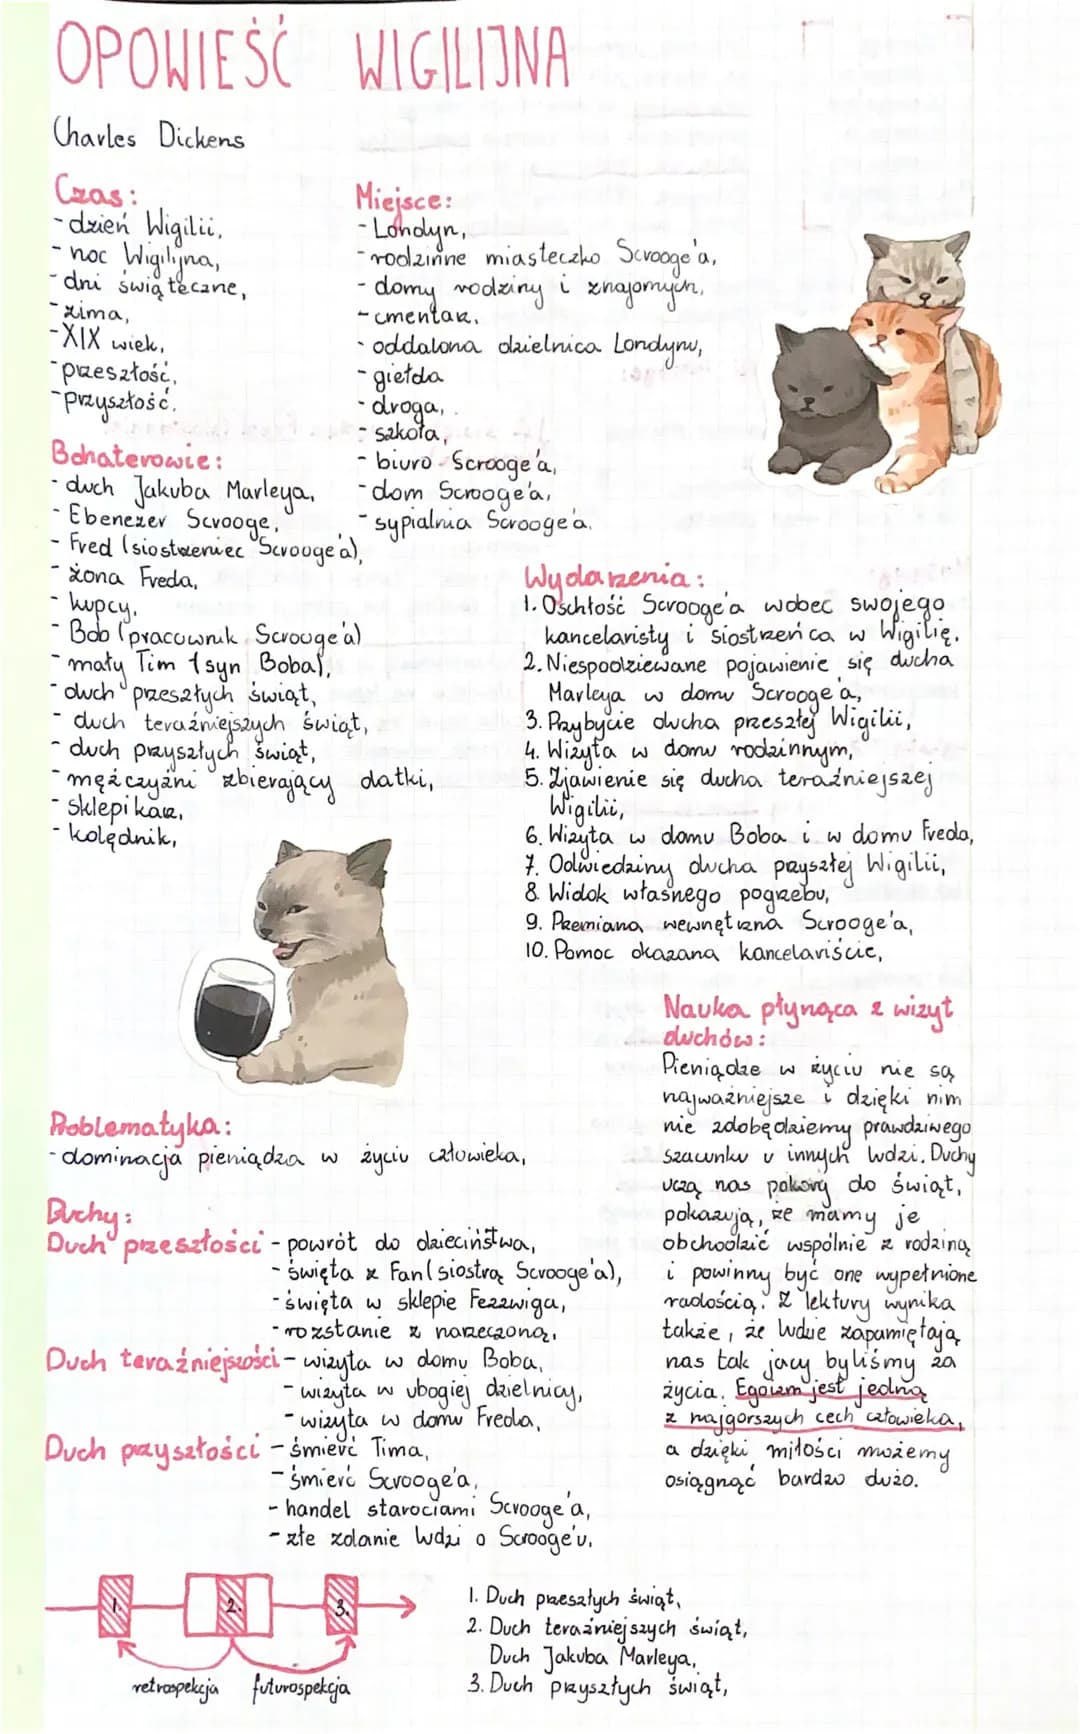 OPOWIEŚĆ WIGILIJNA
Charles Dickens
Czas:
- dzień Wigilii,
- noc Wigilijna,
- dni świąteczne,
- zima,
- XIX wiek,
- przeszłość,
- przyszłość.
Miejsce:
- Londyn,
- rodzinne miasteczko Scrooge'a,
- domy rodziny i znajomych,
- cmentarz,
- oddalona dzielnica Londynu,
- giełda
- droga,
- szkoła,
- biuro Scrooge'a,
- dom Scrooge'a,
- sypialnia Scrooge'a.
Bohaterowie:
- duch Jakuba Marleya,
- Ebenezer Scrooge,
- Fred (siostrzeniec Scrooge'a),
- żona Freda,
- kupcy,
- Bob (pracownik Scrooge'a)
- mały Tim (syn Boba),
- duch przeszłych świąt,
- duch teraźniejszych świąt,
- duch przyszłych świąt,
- mężczyźni zbierający datki,
- sklepikarz,
- kolędnik,
Wydarzenia:
1. Oschłość Scrooge'a wobec swojego
kancelaristy i siostrzeńca w Wigilię.
2. Niespodziewane pojawienie się ducha
Marleya w domu Scrooge'a,
3. Przybycie ducha przeszłej Wigilii,
4. Wizyta w domu rodzinnym,
5. Zjawienie się ducha teraźniejszej
Wigilii,
6. Wizyta w domu Boba i w domu Freda,
7. Odwiedziny ducha przyszłej Wigilii,
8. Widok własnego pogrzebu,
9. Przemiana wewnętrzna Scrooge'a,
10. Pomoc okazana kancelariście,
Nauka płynąca z wizyt
duchów:
Pieniądze w życiu nie są
najważniejsze i dzięki nim
nie zdobędziemy prawdziwego
szacunku u innych ludzi. Duchy
uczą nas pokory do świąt,
pokazują, że mamy je
obchodzić wspólnie z rodziną
i powinny być one wypełnione
radością. Z lektury wynika
także, że ludzie zapamiętają
nas tak jacy byliśmy za
życia. Egoizm jest jedną
z najgorszych cech człowieka,
a dzięki miłości możemy
osiągnąć bardzo dużo.
Problematyka:
- dominacja pieniądza w życiu człowieka,
Duchy:
Duch przeszłości - powrót do dzieciństwa,
- święta z Fan (siostrą Scrooge'a),
- święta w sklepie Fezzwiga,
- rozstanie z narzeczoną,
Duch teraźniejszości - wizyta w domu Boba,
- wizyta w ubogiej dzielnicy,
- wizyta w domu Freda,
Duch przyszłości - śmierć Tima,
- śmierć Scrooge'a,
- handel starociami Scrooge'a,
- złe zdanie ludzi o Scrooge'u,
1.
2.
3.
retrospekcja futurospekcja
1. Duch przeszłych świąt,
2. Duch teraźniejszych świąt,
Duch Jakuba Marleya,
3. Duch przyszłych świąt,